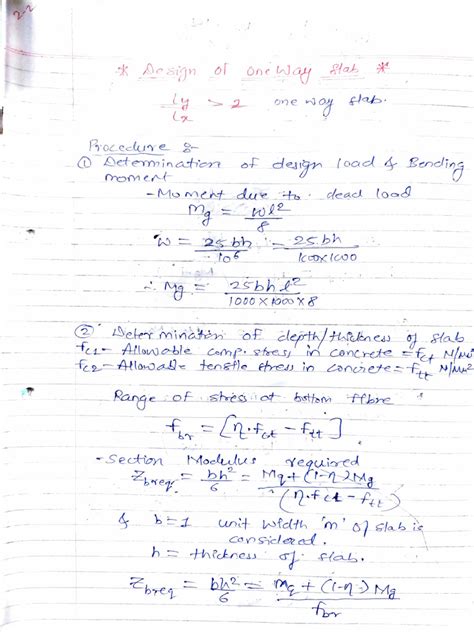 2-2
* Design of one way slab *
ly/lx > 2 one way slab.
Procedure :-
① Determination of design load & Bending
moment
- Moment due to dead load
Mg = wl²/8
W = 25bh/10⁶ = 25.bh/1000x1000
∴ Mg = 25bhl²/1000×1000×8
② Determination of depth/thickness of slab
fc1 - Allowable comp. stress in concrete = fct N/mm²
fc2 - Allowable tensile stress in concrete = ftt N/mm²
Range of stress at bottom fibre
fbr = [η.fct - ftt]
- Section Modulus required
Zbreq = bh²/6 = Mq+(1-η)Mg/(η.fct - ftt)
& b=1 unit width 'm' of slab is
considered.
h = thickness of slab.
Zbreq = bh²/6 = Mq + (1-η) Mg/fbr